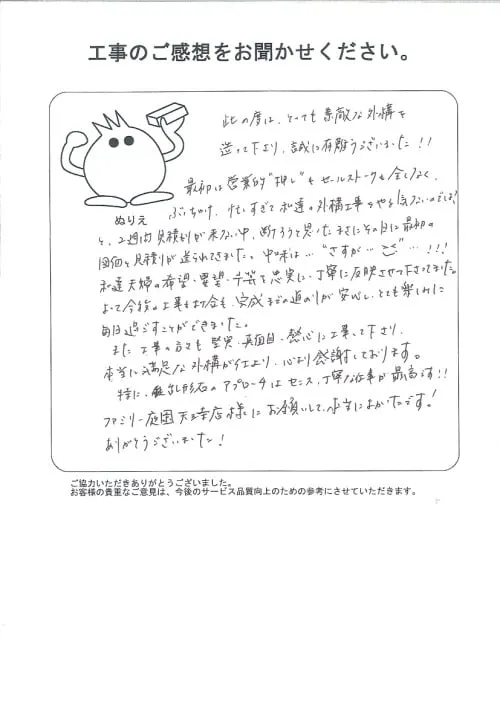 工事のご感想をお聞かせください。
此の度は、とっても素敵な外構を
造って下さり、誠に有難うございました!!
最初は営業的"押し"もセールストークも全くなく、
ぶっちゃけ、忙しすぎて私達の外構工事をやる気ないのでは?
ぬりえ
と、2週間見積りが来ない中、断ろうと思ったまさにその日に最初の
図面と見積りが送られてきました。中味は…"さすが…" "…!!!
私達夫婦の希望・要望・予算を忠実に、丁寧に反映させて下さってました。
よって今後の工事も打合も、完成までの道のりが安心し、とても楽しみに
毎日過ごすことができました。
また工事の方々も堅実・真面目・熱心に工事して下さり、
本当に満足な外構が仕上り、心より感謝しております。
特に、乱形石のアプローチはセンス、丁寧な仕事が最高です!!
ファミリー庭園天王寺店様にお願いして、本当によかったです!
ありがとうございました!
ご協力いただきありがとうございました。
お客様の貴重なご意見は、今後のサービス品質向上のための参考にさせていただきます。